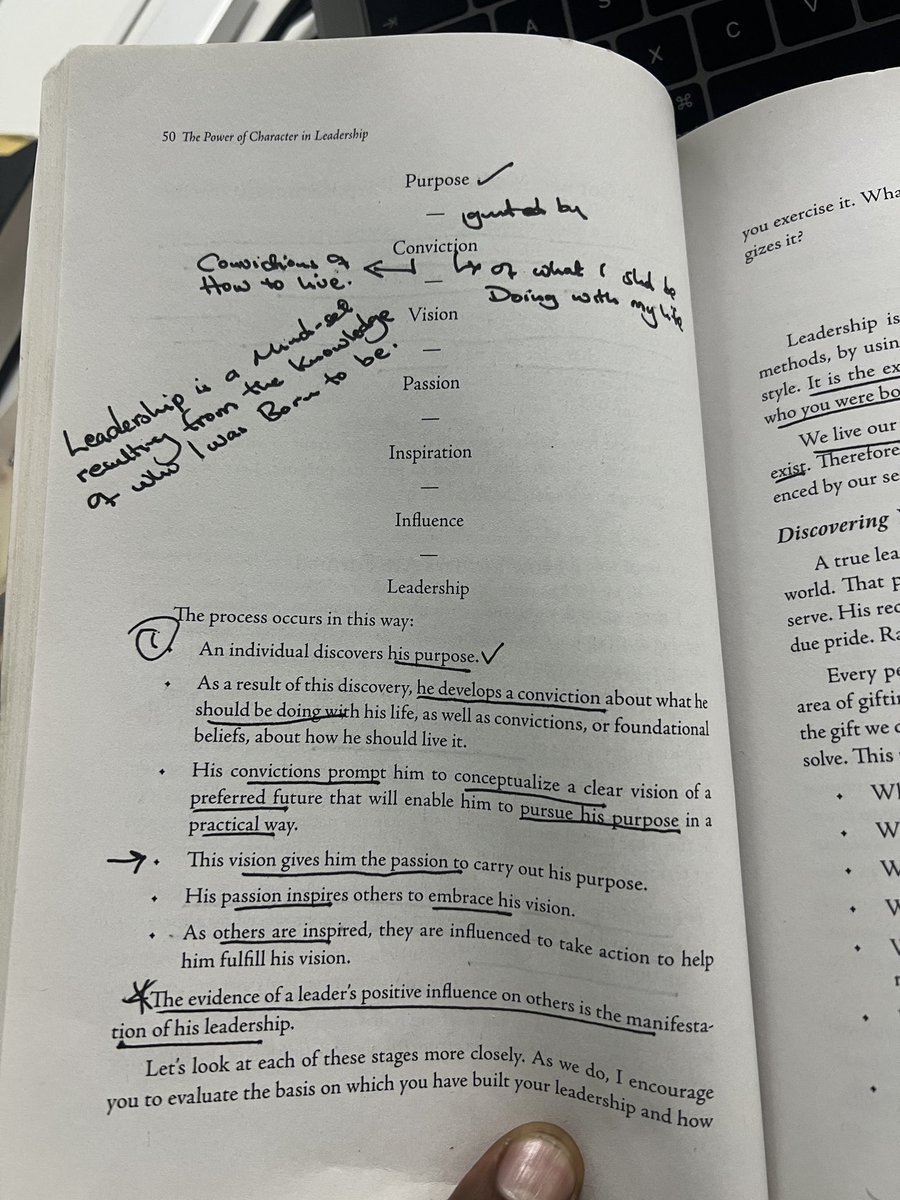 50 The Power of Character in Leadership
Purpose ✓
—
ignited by
Conviction
Convictions of
How to live.
—
↳ of what I shd be
Doing with my life
Vision
Leadership is a Mind-set
resulting from the knowledge
of who I was Born to be.
—
Passion
—
Inspiration
—
Influence
—
Leadership
The process occurs in this way:
• An individual discovers his purpose. ✓
• As a result of this discovery, he develops a conviction about what he
should be doing with his life, as well as convictions, or foundational
beliefs, about how he should live it.
• His convictions prompt him to conceptualize a clear vision of a
preferred future that will enable him to pursue his purpose in a
practical way.
→ • This vision gives him the passion to carry out his purpose.
• His passion inspires others to embrace his vision.
• As others are inspired, they are influenced to take action to help
him fulfill his vision.
The evidence of a leader's positive influence on others is the manifesta-
tion of his leadership.
Let's look at each of these stages more closely. As we do, I encourage
you to evaluate the basis on which you have built your leadership and how
you exercise it.
gizes it?
Leadership is
methods, by
style. It is the
who you were
We live our
exist. Therefore
enced by our
Discovering
A true
world. That
serve. His
due pride.
Every
area of
the gift we
solve. This
A
S
X
C
V
⌘